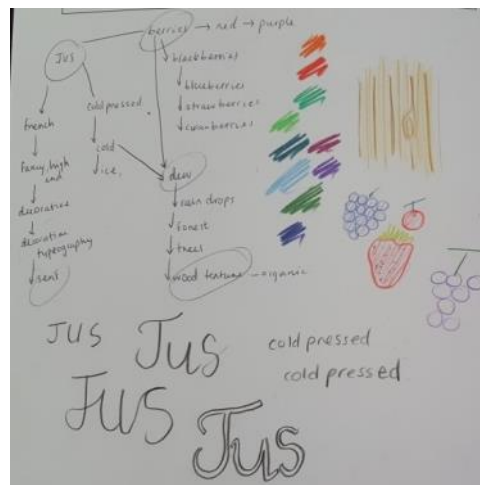 berries → red → purple
Jus
blackberries
blueberries
strawberries
cranberries
cold pressed
cold
ice,
french
fancy, high end
decorative
decorative typeography
dew
rain drops
forest
trees
wood texture - organic
JUS
Jus
cold pressed
cold pressed
JUS
Jus